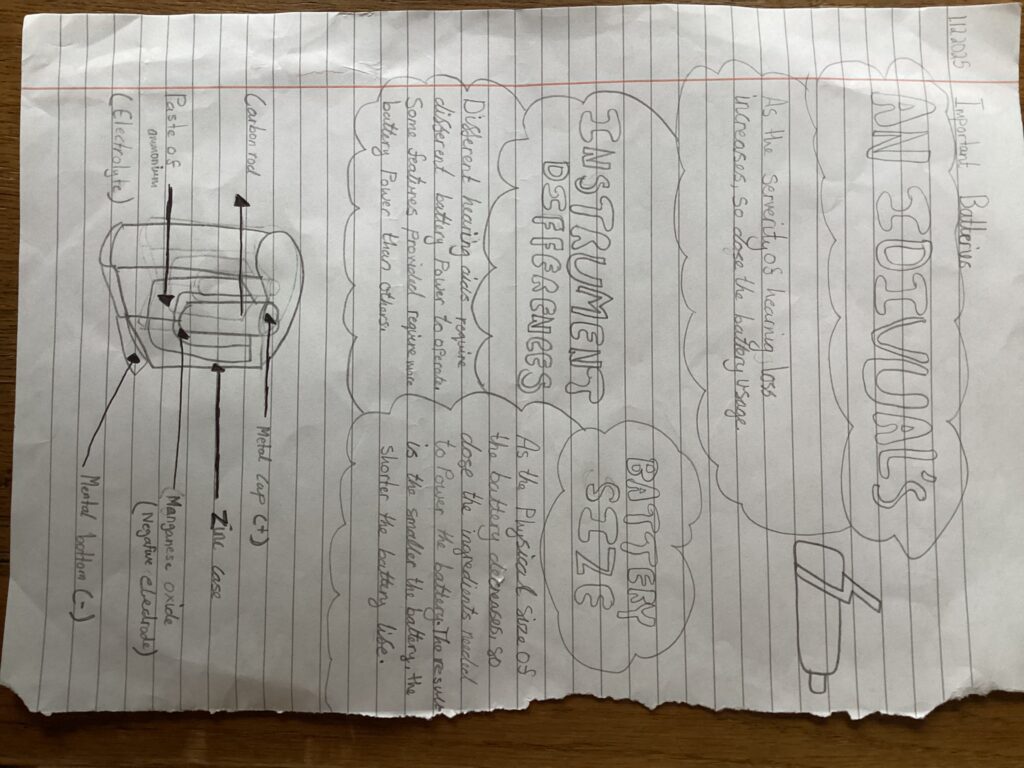 1/2/2025
Important Batteries
AN IDIVUAL'S
As the serverity of hearing loss
increases, so dose the battery usage.
INSTRUMENT
DIFFERENCES
Different hearing aids require
different battery Power to operate
Some features provided require more
battery Power than others.
BATTERY
SIZE
As the Physical size of
the battery decreases, so
dose the ingredients needed
to Power the battery. The result
is the smaller the battery, the
shorter the battery life.
Carbon rod
Paste of
ammonium
(Electrolyte)
Metal cap (+)
Zinc case
Manganese oxide
(Negative electrode)
Mental bottom (-)